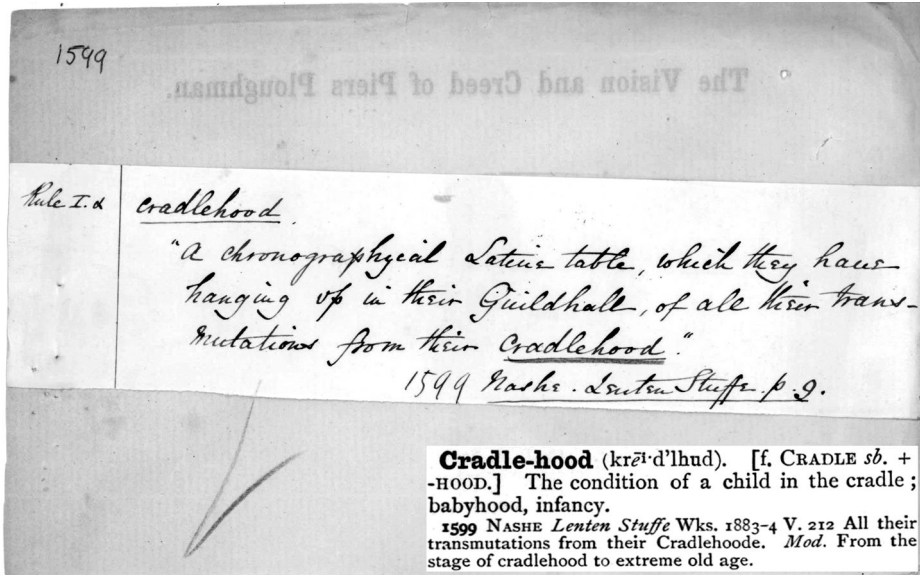 1599
The Vision and Creed of Piers Ploughman.
Rule I. d
cradlehood.
"A chronographycal Latine table, which they haue
hanging vp in their Guildhall, of all their trans-
mutations from their cradlehood."
1599 Nashe. Lenten Stuffe p. 9.
Cradle-hood (krēi·d'lhud). [f. CRADLE sb. +
-HOOD.] The condition of a child in the cradle ;
babyhood, infancy.
1599 NASHE Lenten Stuffe Wks. 1883-4 V. 212 All their
transmutations from their Cradlehoode. Mod. From the
stage of cradlehood to extreme old age.